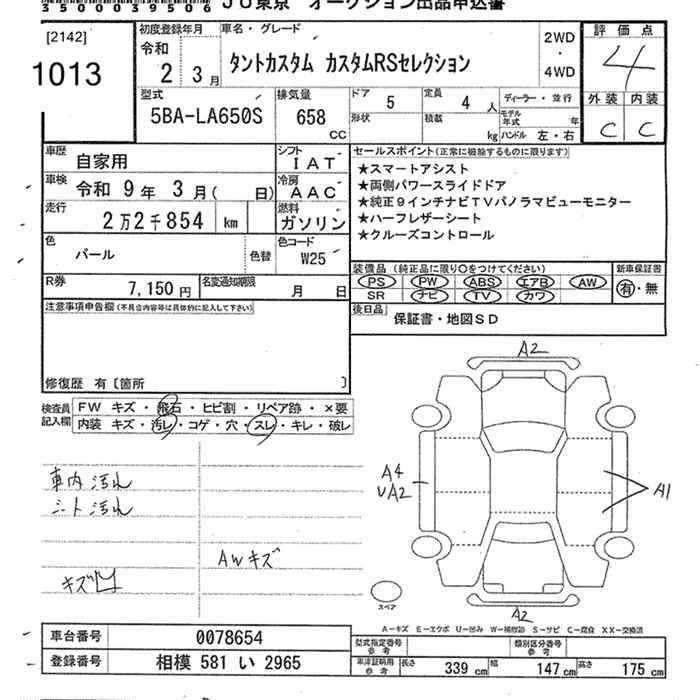 350005039506 JU東京 オークション出品申込書
[2142]
1013
初度登録年月
令和
2 3月
車名・グレード
タントカスタム カスタムRSセレクション
2WD
・
4WD
評価点
4
外装 内装
C C
型式
5BA-LA650S
排気量
658
CC
ドア
5
定員
4人
ディーラー・並行
形状
積載
kg
モデル年式
年
ハンドル 左・右
車歴
自家用
シフト
IAT
車検
令和 9年 3月( 日)
冷房
AAC
走行
2万2千854 km
燃料
ガソリン
色
パール
色替
色コード
W25
R券
7,150円
名変通知期限
月 日
セールスポイント(正常に機能するものに限ります)
★スマートアシスト
★両側パワースライドドア
★純正9インチナビTVパノラマビューモニター
★ハーフレザーシート
★クルーズコントロール
装備品(純正品に限り○をつけてください)
PS PW ABS エアB AW
SR ナビ TV カワ
新車保証書
有・無
後日品
保証書・地図SD
注意事項申告欄(不具合内容等は具体的に記入して下さい)
修復歴 有〔箇所 〕
検査員
記入欄
FW キズ・飛石・ヒビ割・リペア跡・×要
内装 キズ・汚レ・コゲ・穴・スレ・キレ・破レ
車内汚れ
シート汚れ
AWキズ
キズ凹
A2
A4
UA2
A1
A2
スペア
A-キズ E-エクボ U-凹み W-補修跡 S-サビ C-腐食 XX-交換済
車台番号
0078654
登録番号
相模 581 い 2965
型式指定番号
参考
類別区分番号
参考
車庫証明用
参考
長さ 339cm 幅 147cm 高さ 175cm